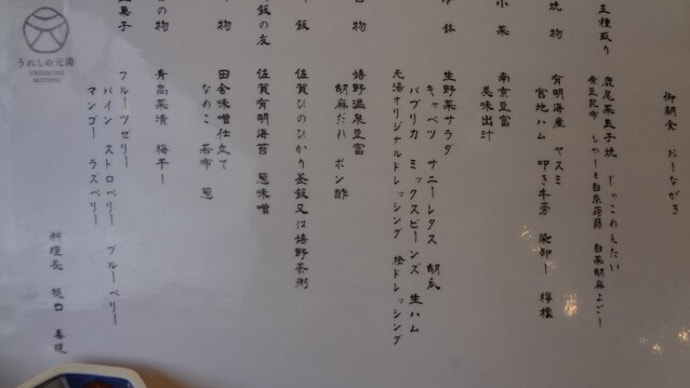 御朝食 おしながき
五種盛り
鹿尾菜玉子焼 じゃこめんたい
煮豆昆布 しゃーと白糸蒟蒻 白菜胡麻よごし
焼物
有明海産 ヤスミ
宮地ハム 叩き牛蒡 染卸し 檸檬
小菜
南京豆富
美味出汁
鉢
生野菜サラダ
キャベツ サニーレタス 胡瓜
パプリカ ミックスビーンズ 生ハム
元湯オリジナルドレッシング 桧ドレッシング
物
嬉野温泉豆富
胡麻だれ ポン酢
飯
佐賀ひのひかり釜飯又は嬉野茶粥
飯の友
佐賀有明海苔 葱味噌
物
田舎味噌仕立て
なめこ 若布 葱
の物
青高菜漬 梅干し
菓子
フルーツゼリー
パイン ストロベリー ブルーベリー
マンゴー ラズベリー
料理長 樋口
うれしの元湯
URESHINO
MOTOYU